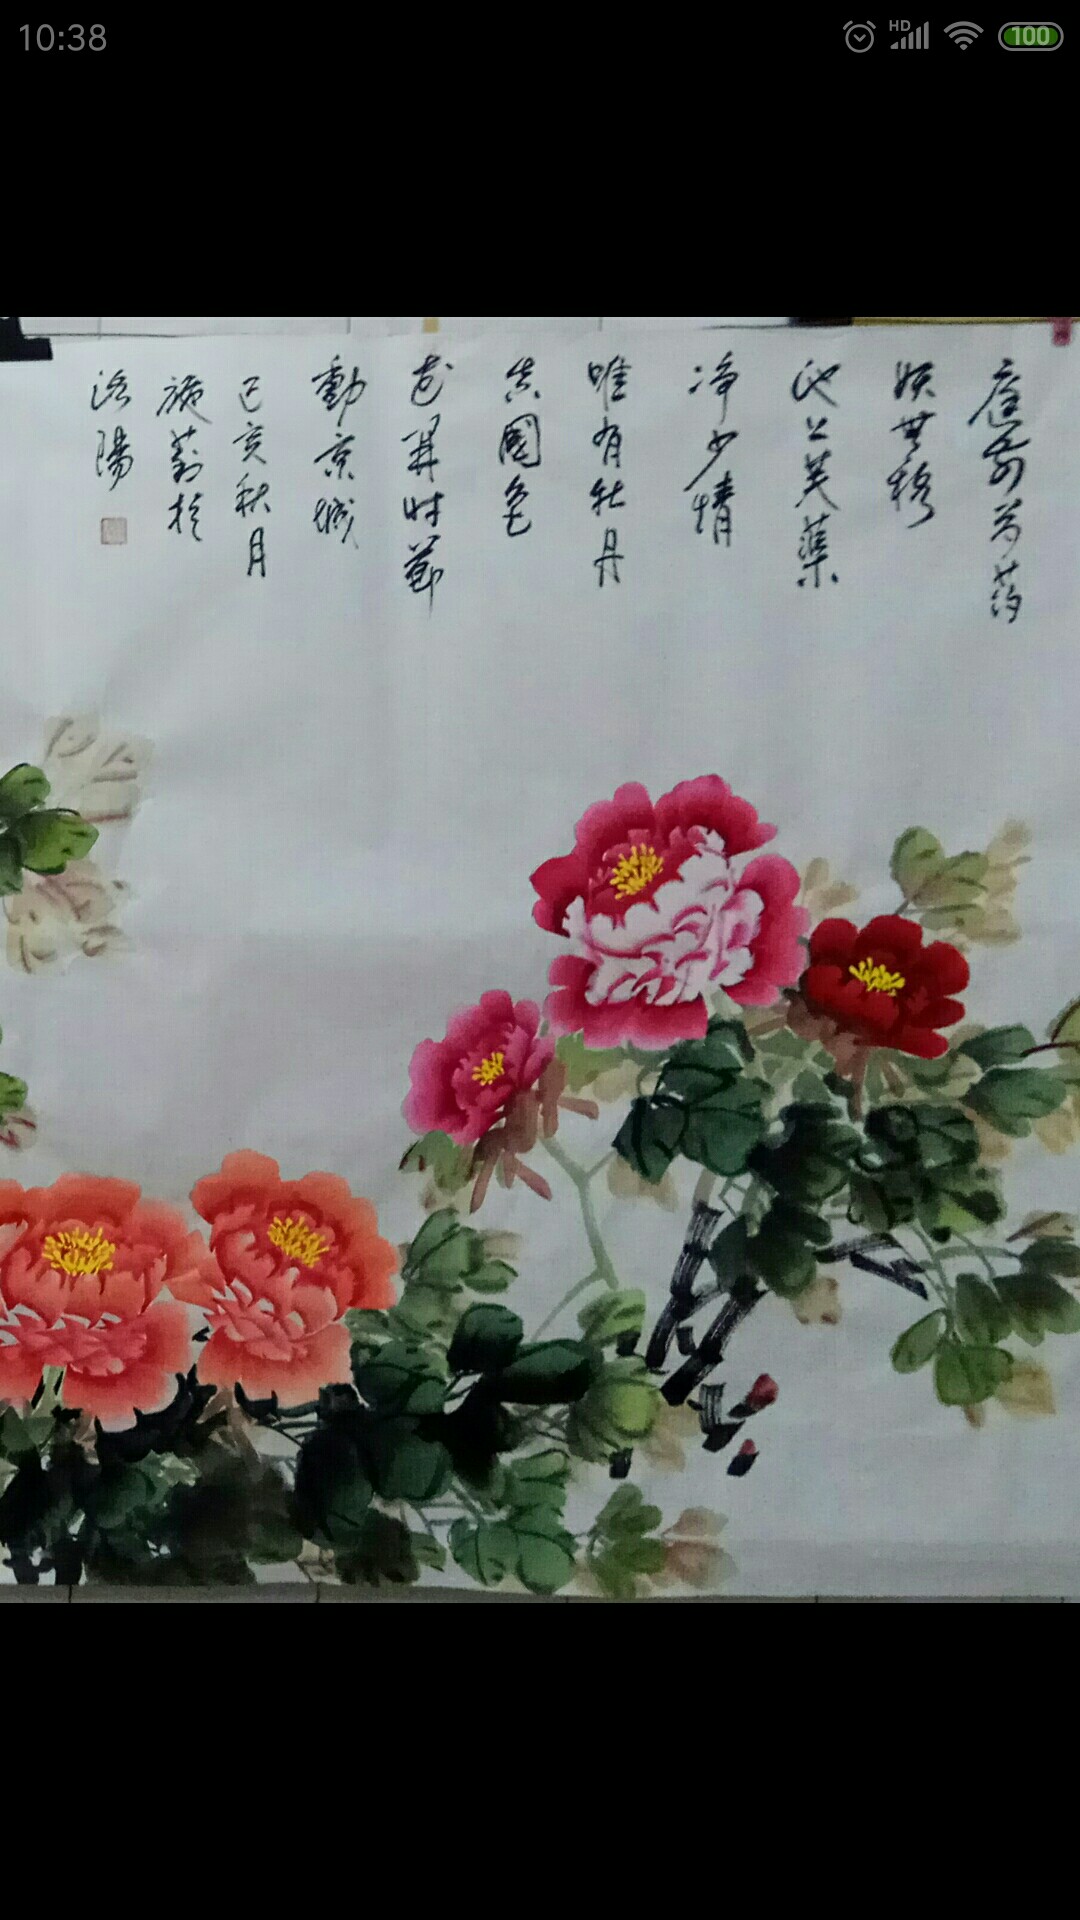 10:38
HD
100
庭前芍药
妖無格
池上芙蕖
净少情
唯有牡丹
真國色
花開时節
動京城
己亥秋月
施於
洛陽